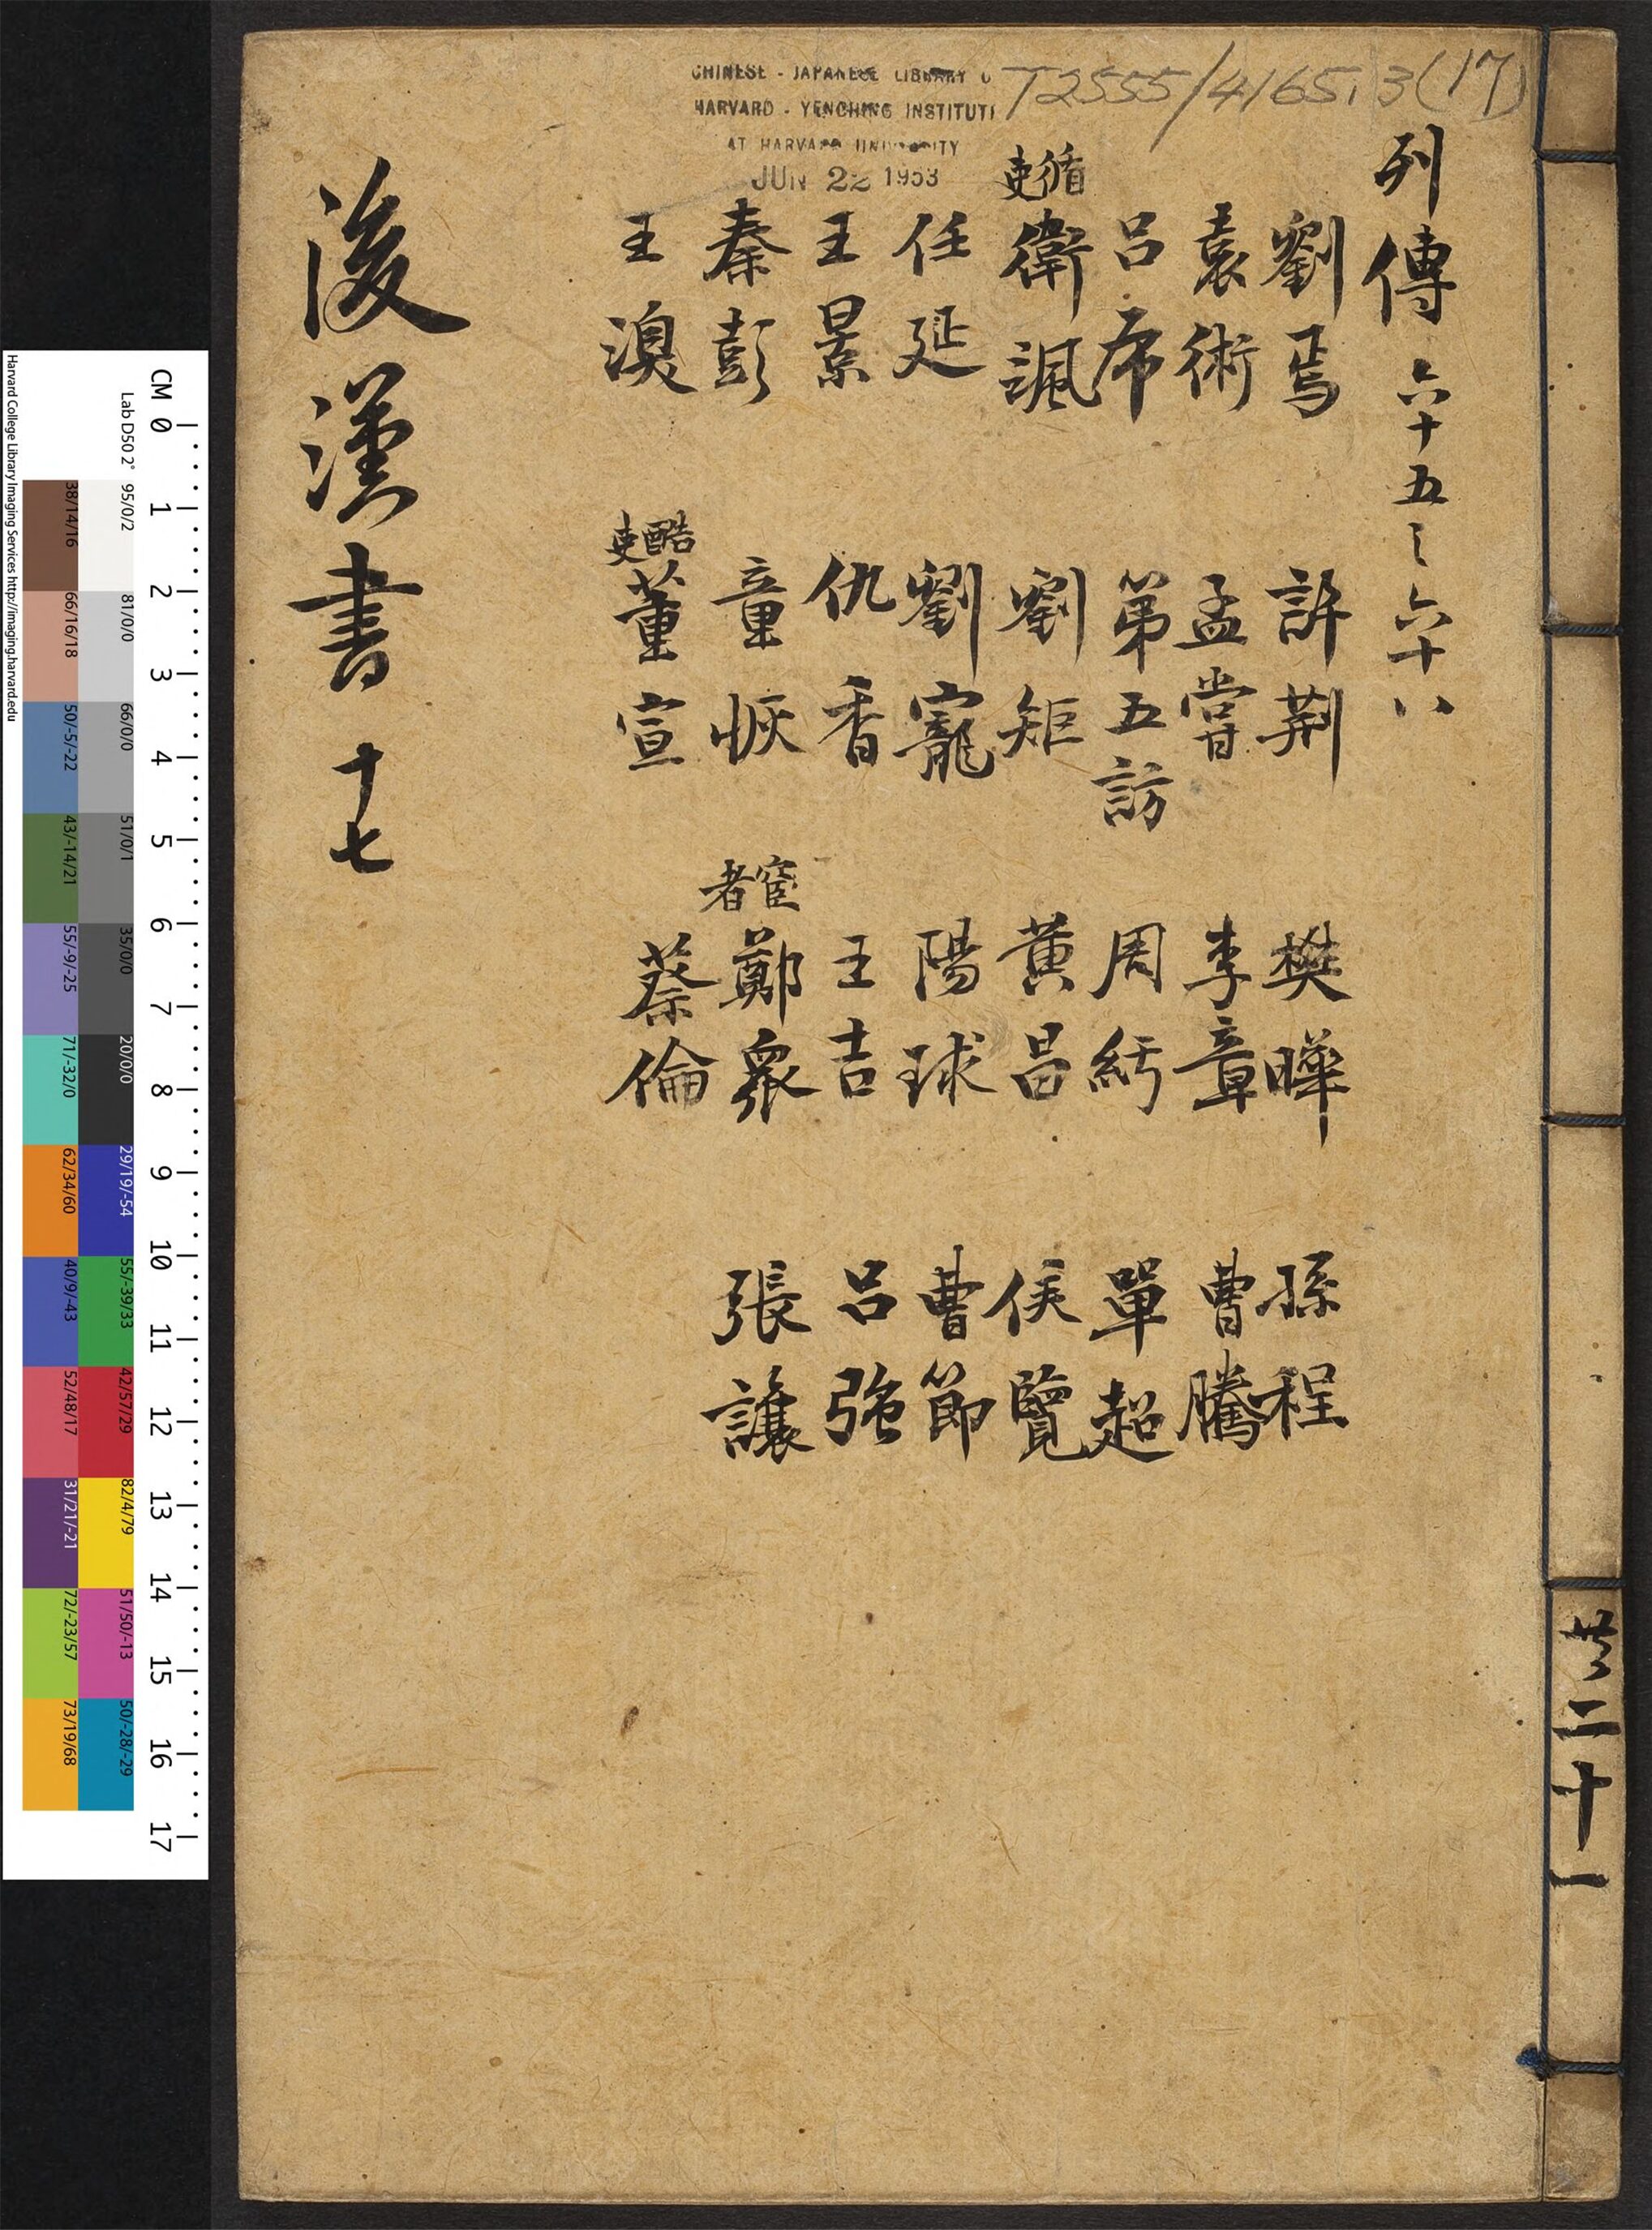 CHINESE - JAPANESE LIBRARY O
HARVARD - YENCHING INSTITUTE
AT HARVARD UNIVERSITY
JUN 22 1953
T2555/4165.3(17)
列傳 六十五之六十八
劉焉
袁術
呂布
循吏
衛颯
任延
王景
秦彭
王渙
許荆
孟甞
第五訪
劉矩
劉寵
仇香
童恢
酷吏
董宣
樊曄
李章
周紆
黃昌
陽球
王吉
宦者
鄭衆
蔡倫
孫程
曹騰
單超
侯覽
曹節
呂强
張讓
後漢書 十七
共二十一
CM 0 1 2 3 4 5 6 7 8 9 10 11 12 13 14 15 16 17
Lab D50 2°
95/0/2
81/0/0
66/0/0
51/0/1
35/0/0
20/0/0
29/19/-54
55/-39/33
42/57/29
82/4/79
51/50/-13
50/-28/-29
38/14/16
66/16/18
50/-5/-22
43/-14/21
55/-9/-25
71/-32/0
62/34/60
40/9/-43
52/48/17
31/21/-21
72/-23/57
73/19/68
Harvard College Library Imaging Services http://imaging.harvard.edu